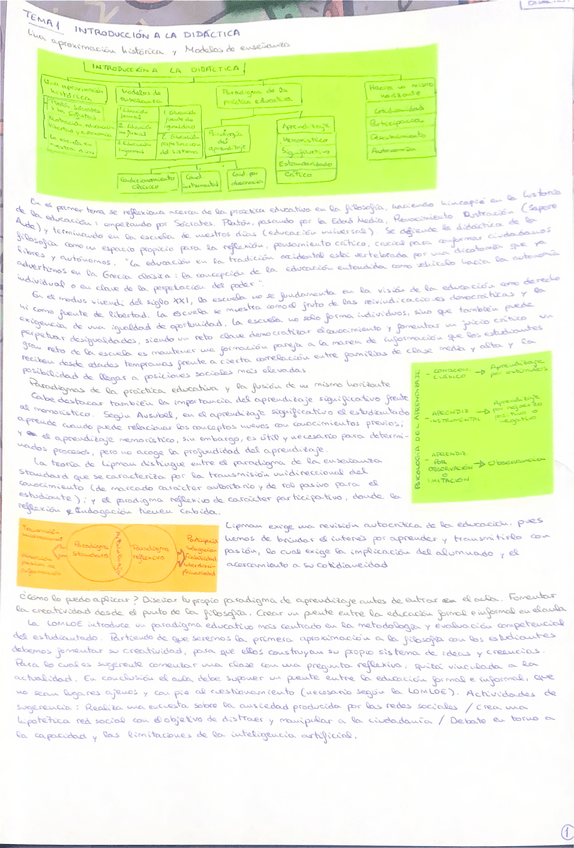 TEMA 1 INTRODUCCIÓN A LA DIDÁCTICA
Una aproximación histórica y Modelos de enseñanza
INTRODUCCIÓN A LA DIDÁCTICA
Una aproximación histórica
Modelos de enseñanza
Paradigma de la práctica educativa
Hacia un mismo horizonte
Paradigma del aprendizaje
Aprendizaje
Memorístico
Significativo
Estandarizado
Crítico
Creatividad
Participación
Autonomía
Condicionamiento clásico
Cond. instrumental
Cond. por observación
En el primer tema se reflexiona acerca de la práctica educativa en la filosofía, haciendo hincapié en la historia
de la educación: empezando por Sócrates, Platón, pasando por la Edad Media, Renacimiento, Ilustración (Sapere
Aude) y terminando en la escuela de nuestros días (educación universal). Se defiende la didáctica de la
filosofía como un espacio propicio para la reflexión, pensamiento crítico, crucial para conformar ciudadanos
libres y autónomos. "La educación en la tradición occidental está vertebrada por una dicotomía que ya
advertimos en la Grecia clásica: la concepción de la educación entendida como vehículo hacia la autonomía
individual o en clave de la perpetuación del poder"
En el modus vivendi del siglo XXI, la escuela se fundamenta en la visión de la educación como derecho
y como fuente de libertad. La escuela se muestra como el fruto de las reivindicaciones democráticas y la
exigencia de una igualdad de oportunidad. La escuela no sólo forma individuos, sino que también puede
perpetuar desigualdades, siendo un reto clave democratizar el conocimiento y fomentar un juicio crítico. Un
gran reto de la escuela es mantener una formación pareja a la marea de información que los estudiantes
reciben desde edades tempranas frente a cierta correlación entre familias de clase media y alta y la
posibilidad de llegar a posiciones sociales más elevadas
Paradigmas de la práctica educativa y la fusión de un mismo horizonte
Cabe destacar también la importancia del aprendizaje significativo frente
al memorístico. Según Ausubel, en el aprendizaje significativo el estudiantado
aprende cuando puede relacionar los conceptos nuevos con conocimientos previos;
y el aprendizaje memorístico, sin embargo, es útil y necesario para determi-
nados procesos, pero no acoge la profundidad del aprendizaje.
La teoría de Lipman distingue entre el paradigma de la enseñanza
standard que se caracteriza por la transmisión unidireccional del
conocimiento (de marcado carácter autoritario y de rol pasivo para el
estudiante); y el paradigma reflexivo de carácter participativo, donde la
reflexión e indagación tienen cabida.
PARADIGMA DEL APRENDIZAJE
- CONDICION. CLÁSICO → Aprendizaje por estímulos
- APRENDIZ. INSTRUMENTAL → Aprendizaje por refuerzo positivo o negativo
- APRENDIZ. POR OBSERVACIÓN O IMITACIÓN → Observación
Paradigma standard
Paradigma reflexivo
Lipman exige una revisión autocrítica de la educación, pues
hemos de brindar el interés por aprender y transmitirlo con
pasión, lo cual exige la implicación del alumnado y el
acercamiento a su cotidianeidad
¿Cómo lo puedo aplicar? Diseñar tu propio paradigma de aprendizaje antes de entrar en el aula. Fomentar
la creatividad desde el punto de la filosofía. Crear un puente entre la educación formal e informal en el aula
La LOMLOE introduce un paradigma educativo más centrado en la metodología y evaluación competencial
del estudiantado. Partiendo de que seremos la primera aproximación a la filosofía con los estudiantes
debemos fomentar su creatividad, para que ellos construyan su propio sistema de ideas y creencias.
Para lo cual es sugerente comentar una clase con una pregunta reflexiva, quizá vinculada a la
actualidad. En conclusión el aula debe suponer un puente entre la educación formal e informal, que
no sean lugares ajenos y con pie al cuestionamiento (necesario según la LOMLOE). Actividades de
sugerencia: Realiza una encuesta sobre la ansiedad producida por las redes sociales / crea una
hipotética red social con el objetivo de distraer y manipular a la ciudadanía / Debate en torno a
la capacidad y las limitaciones de la inteligencia artificial.
1